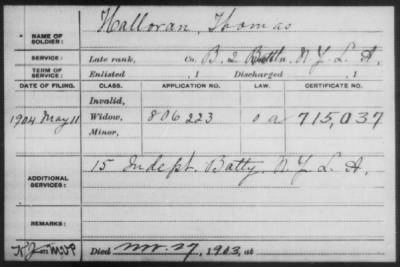 NAME OF SOLDIER: Halloran, Thomas
SERVICE: Late rank, Co. B. 2 Battn. N. Y. L. A.
TERM OF SERVICE: Enlisted , 1 Discharged , 1
DATE OF FILING. CLASS. APPLICATION NO. LAW. CERTIFICATE NO.
Invalid,
1904 May 11 Widow, 806223 715,037
Minor,
ADDITIONAL SERVICES: 15 Indept. Batty. N. Y. L. A.
REMARKS:
Died Nov. 27, 1903, at